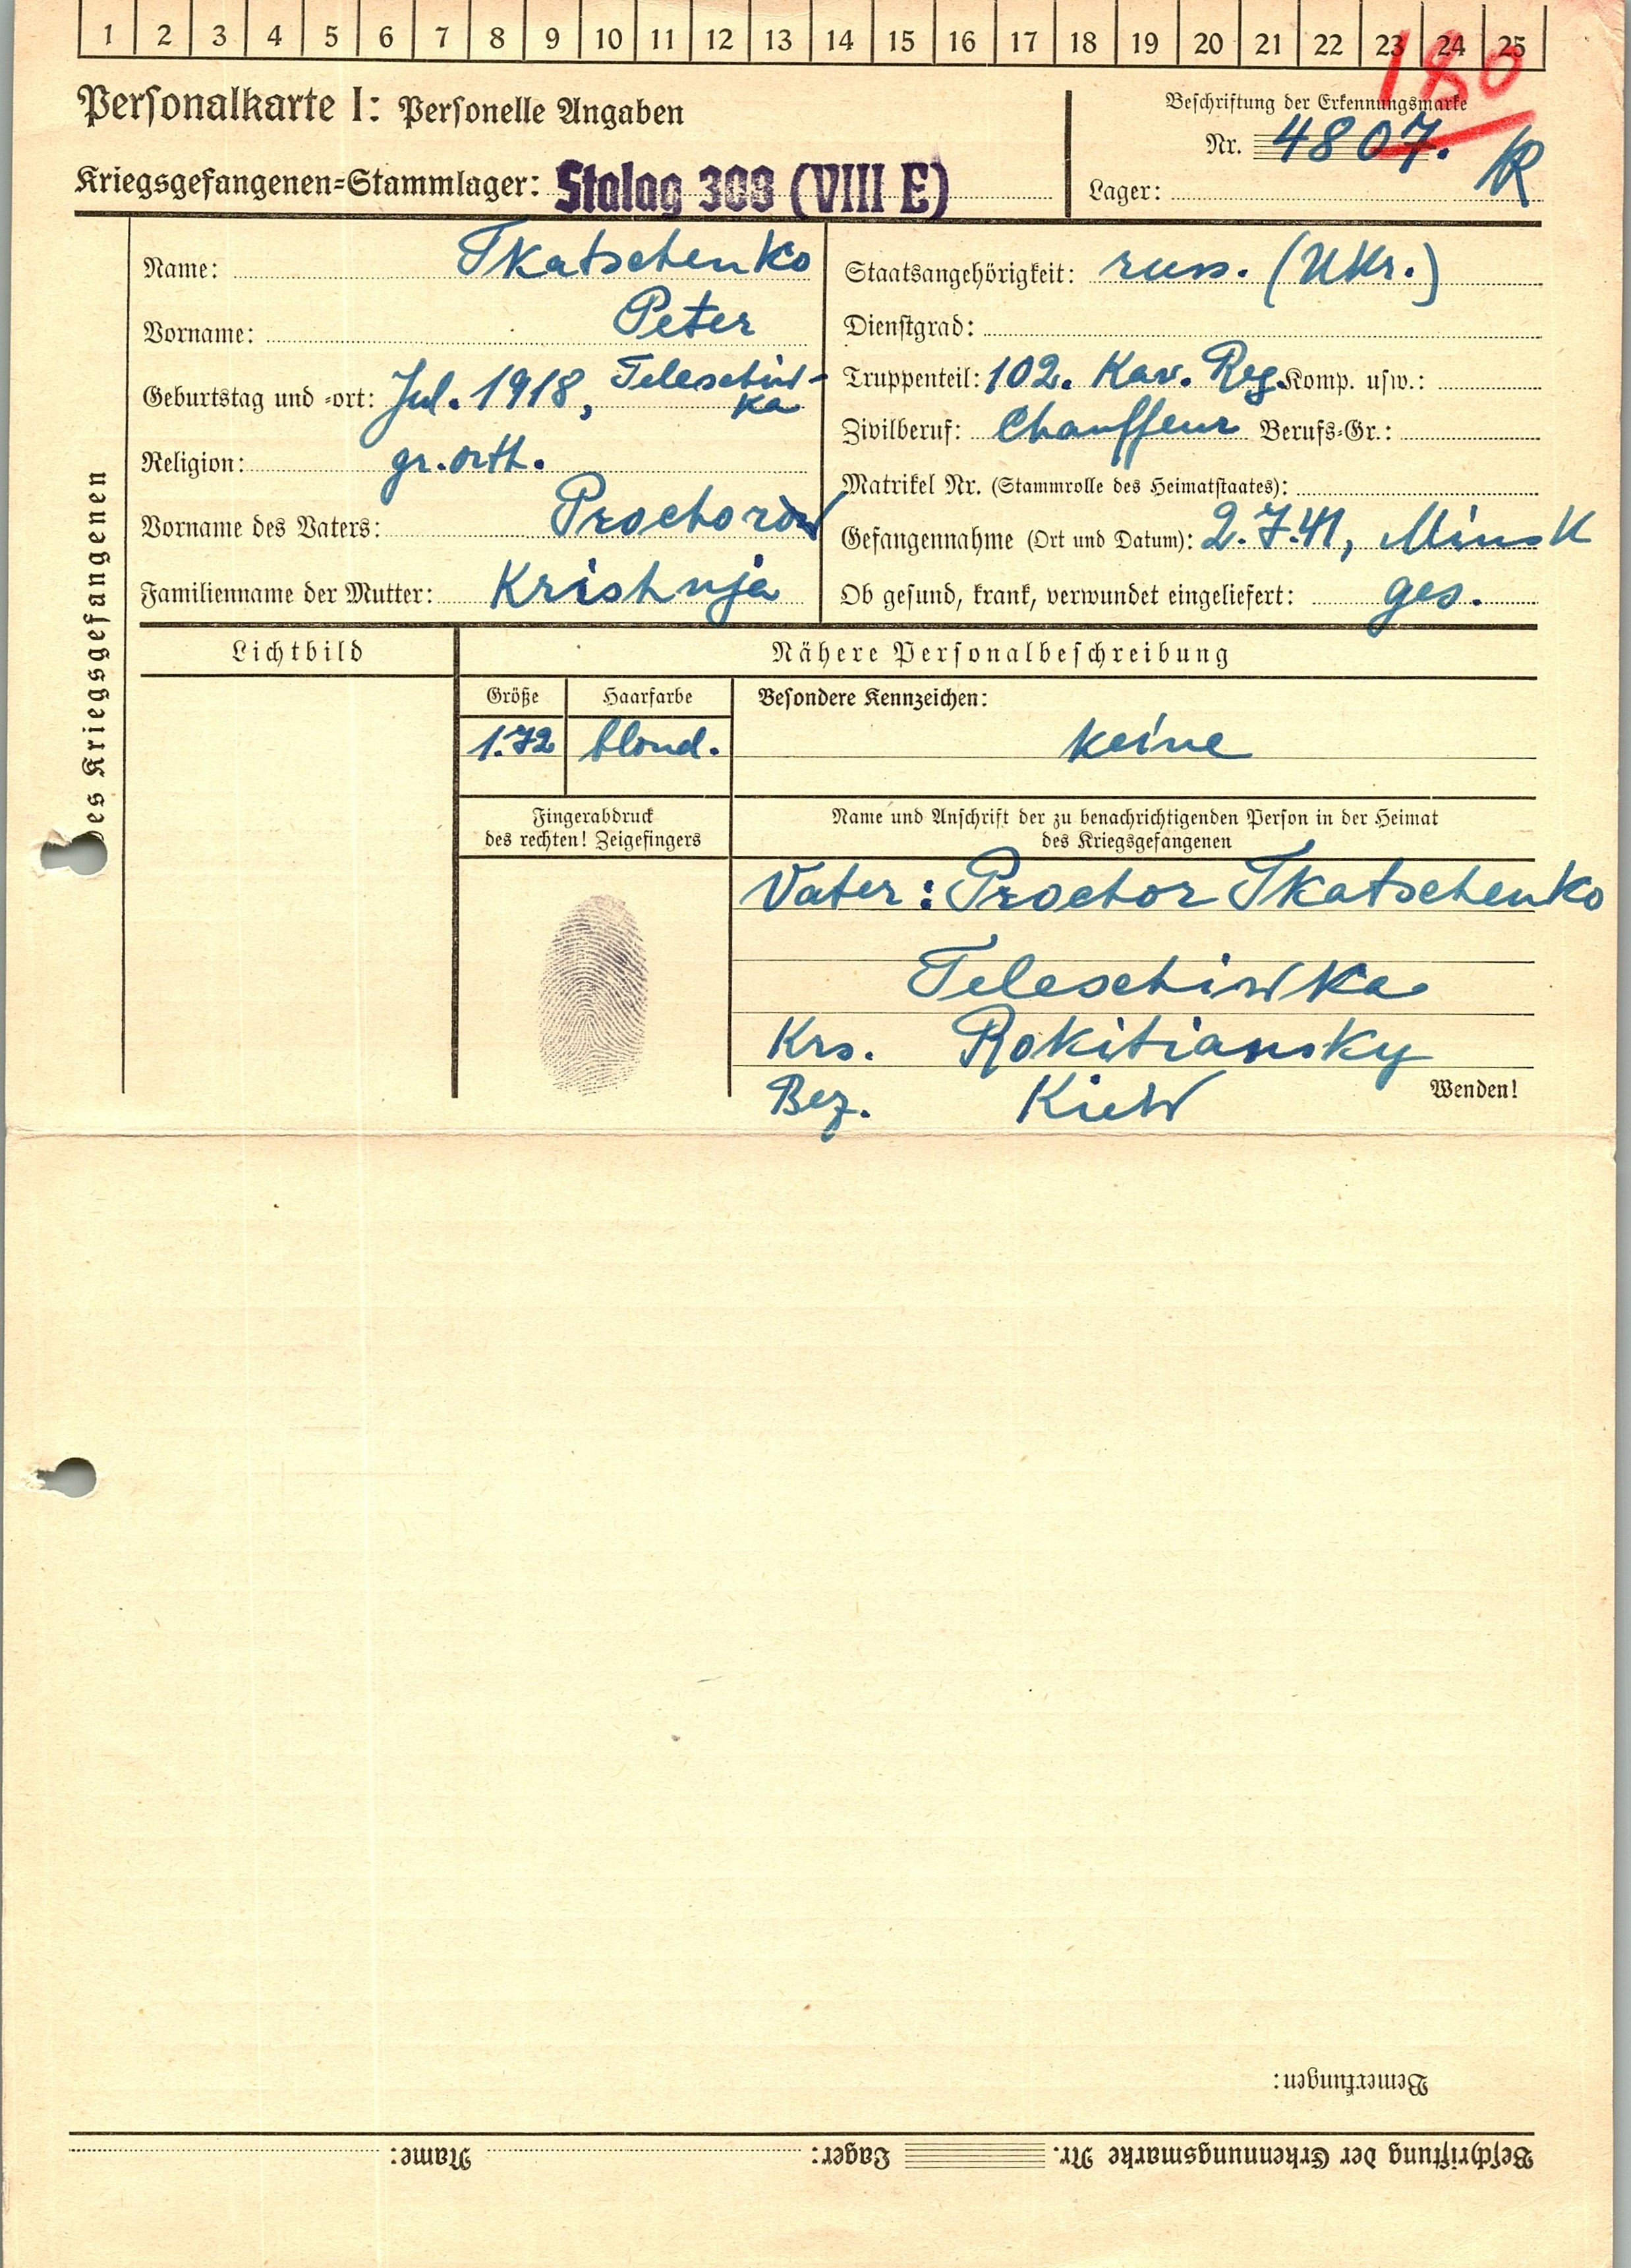 1 2 3 4 5 6 7 8 9 10 11 12 13 14 15 16 17 18 19 20 21 22 23 24 25
180
Personalkarte I: Personelle Angaben
Beschriftung der Erkennungsmarke
Nr. 4807.
Kriegsgefangenen=Stammlager: Stalag 308 (VIII E)
Lager:
Name: Tkatschenko
Vorname: Peter
Geburtstag und =ort: Jul. 1918, Teleschiw-
ka
Religion: gr. orth.
Vorname des Vaters: Prochorow
Familienname der Mutter: Krishnja
Staatsangehörigkeit: russ. (Ukr.)
Dienstgrad:
Truppenteil: 102. Kav. Reg. Komp. usw.:
Zivilberuf: Chauffeur Berufs=Gr.:
Matrikel Nr. (Stammrolle des Heimatstaates):
Gefangennahme (Ort und Datum): 2.7.41, Minsk
Ob gesund, krank, verwundet eingeliefert: ges.
des Kriegsgefangenen
Lichtbild
Nähere Personalbeschreibung
Größe
1.72
Haarfarbe
blond.
Besondere Kennzeichen:
keine
Fingerabdruck
des rechten! Zeigefingers
Name und Anschrift der zu benachrichtigenden Person in der Heimat
des Kriegsgefangenen
Vater: Prochor Tkatschenko
Teleschiwka
Krs. Rokitiansky
Bez. Kiew
Wenden!
Bemerkungen:
Beschriftung der Erkennungsmarke Nr. Lager: Name: